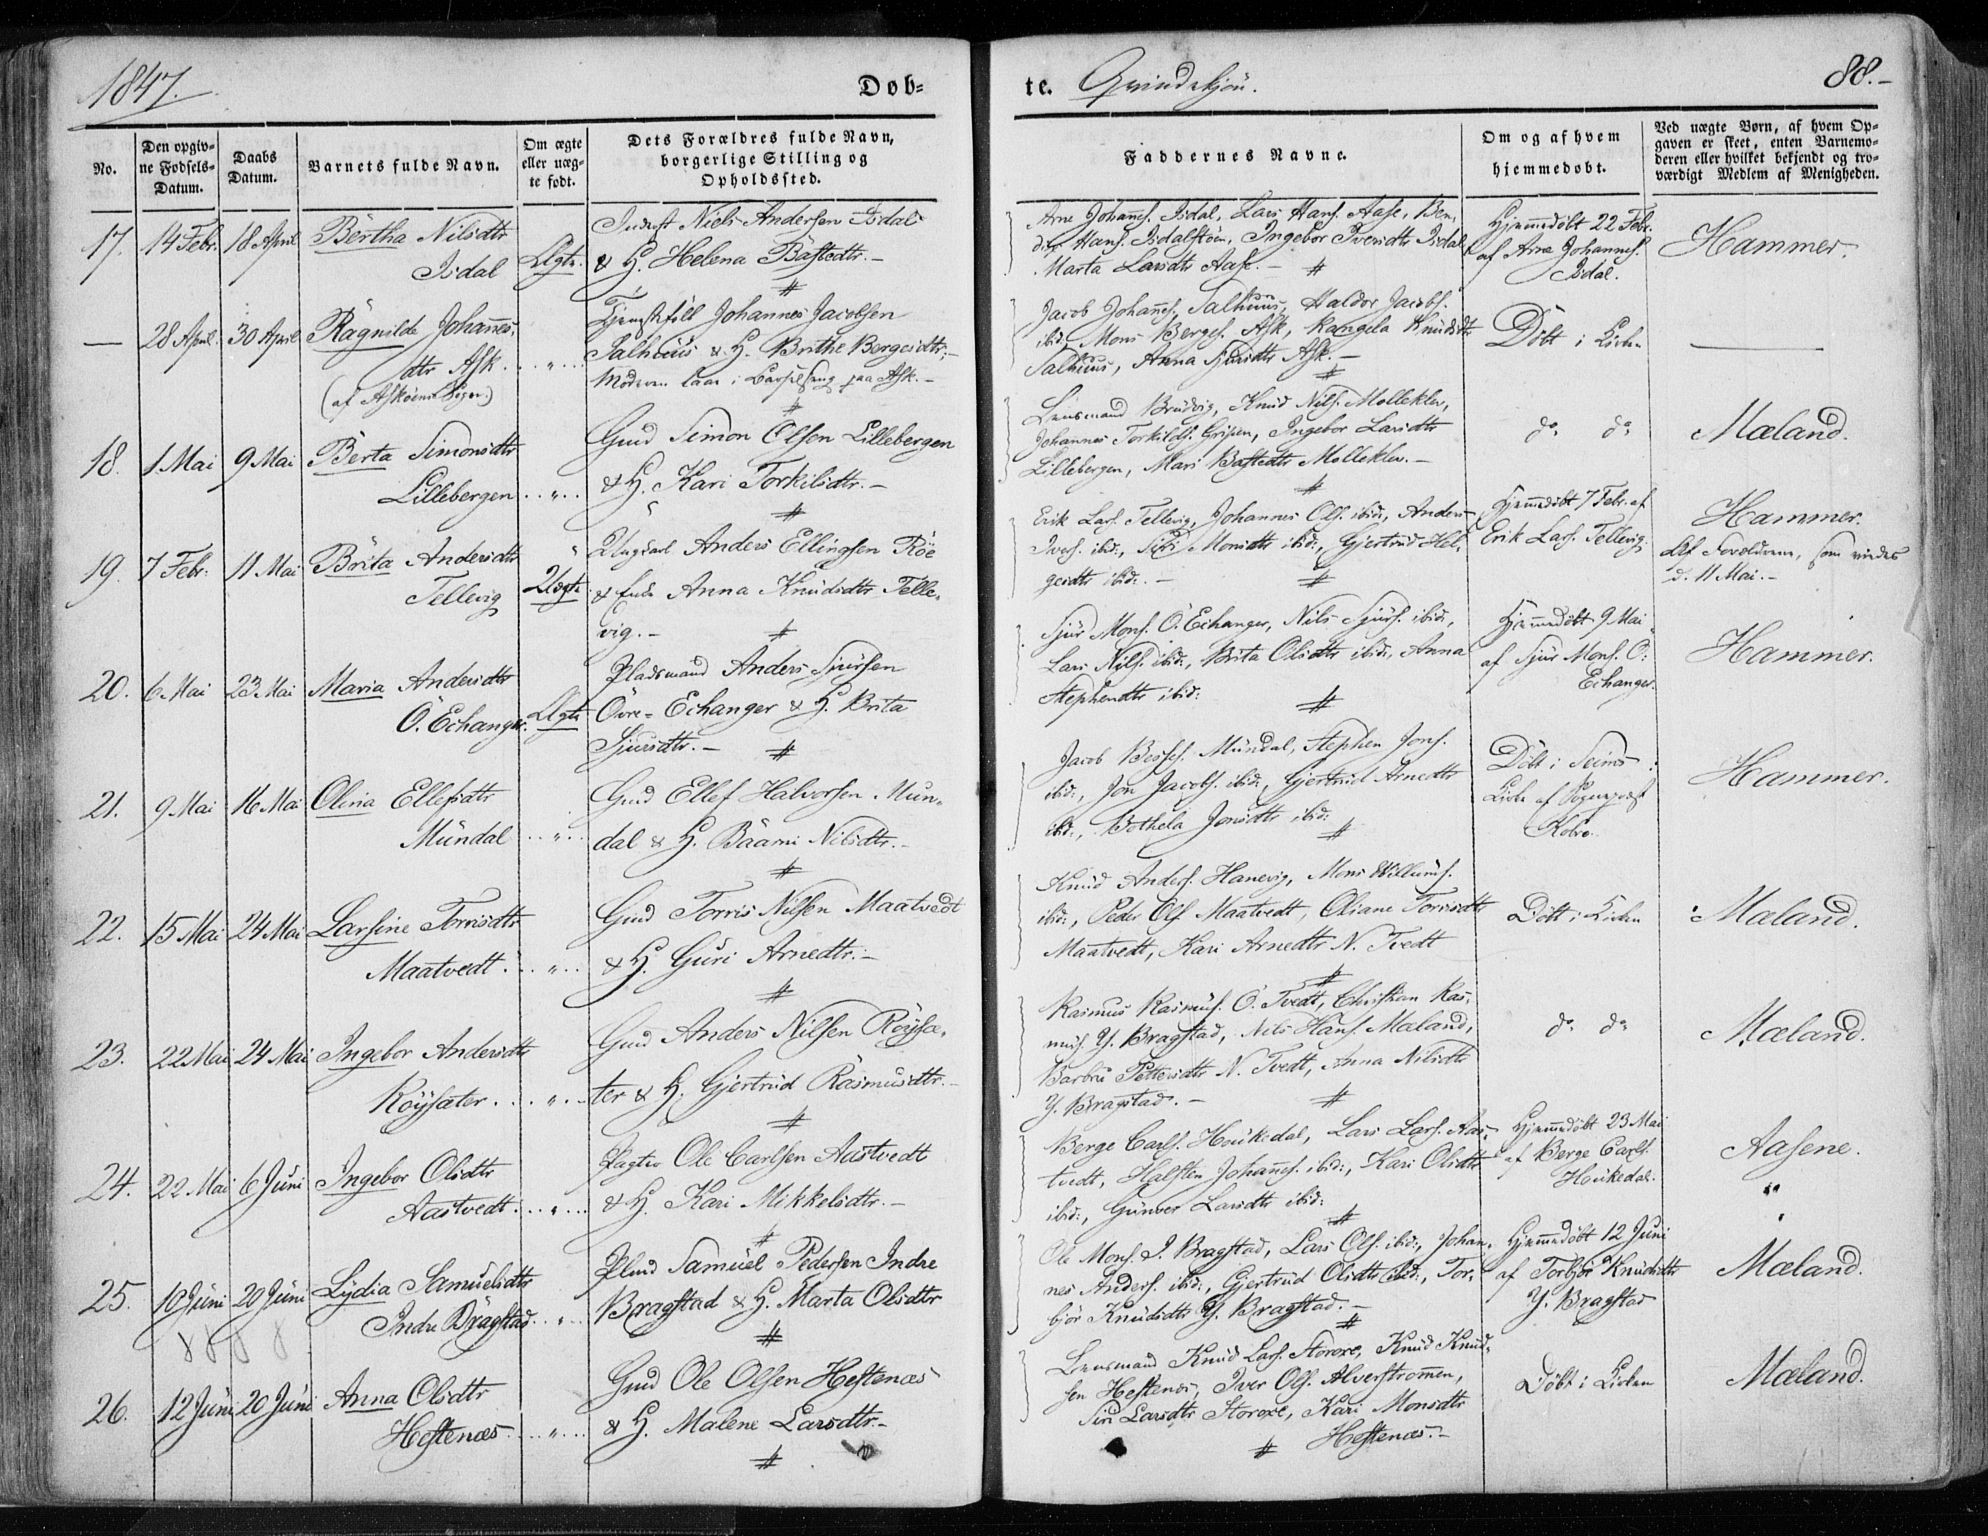 1847.
Dob-
te. Qvindekjön.
88.-
No.
Den opgiv-
ne Fodsels-
Datum.
Daabs
Datum.
Barnets fulde Navn.
Om ægte
eller uæg-
te født.
Dets Forældres fulde Navn,
borgerlige Stilling og
Opholdssted.
Faddernes Navne.
Om og af hvem
hjemmedobt.
Ved uægte Born, af hvem Op-
gaven er skeet, enten Barnemo-
deren eller hvilket bekjendt og tro-
værdigt Medlem af Menigheden.
17. 14 Febr. 18 April Bertha Nilsdtr
Isdal Ægte.
Niels Andersen Isdal
& H. Helena Bastedtr.-
Arne Johans. Isdal, Lars Hans. Aase, Ben-
dix Hans. Isdalstöen, Ingebor Iversdtr Isdal
Marta Larsdtr Aase.-
Hjemmedöbt 22 Febr.
af Arne Johannes.
Isdal.
Hammer.
— 28 April. 30 April Ragnilde Johannes-
dtr Ask.
(af Askøens Sogn.)
Johannes Jacobsen
Salhuus & H. Brithe Bergesdtr;-
Moderen laae i Barselseng paa Ask.-
Jacob Johans. Salhuus, Haldor Jacobs.
ibd. Mons Berges. Ask, Rangela Knudsdtr
Salhuus, Anna Sjursdtr Ask.-
Döbt i Kirken
18. 1 Mai 9 Mai Berta Simonsdtr
Lillebergen
Gmd Simon Olsen Lillebergen
& H. Kari Torkilsdtr.-
Lensmand Brudvig, Knud Nils. Mollekleu,
Johannes Torkilds. Gripen, Ingebor Larsdtr
Lillebergen, Mari Bastedtr Mollekleu.-
do do
Mæland.
19. 7 Febr. 11 Mai Brita Andersdtr
Tellevig
Uægte
Ungkarl Anders Ellingsen Röe
& Anna Knudsdtr Telle-
vig.-
Erik Lars. Tellevig, Johannes Ols. ibid:, Anders
Ivers. ibid:, Siri Monsdtr ibid:, Gjertrud Hel-
gesdtr ibid:.-
Hjemmedöbt 7 Febr. af
Erik Lars. Tellevig
Hammer.
Af Forældrene, som viedes
d. 11 Mai.-
20. 6 Mai 23 Mai Maria Andersdtr
Ö. Echanger. Ægte
Pladsmand Anders Sjursen
Övre- Echanger & H. Brita
Sjursdtr.-
Sjur Mons. Ö. Echanger, Nils Sjurs. ibid:,
Lars Nils. ibid:, Brita Olsdtr ibid:, Anna
Stephensdtr ibid:
Hjemmedöbt 9 Mai
af Sjur Mons. Ö:
Echanger.
Hammer.
21. 9 Mai 16 Mai Olina Ellefsdtr
Mundal
Gmd Ellef Halvorsen Mun-
dal & H. Baarni Nilsdtr.-
Jacob Mundal, Stephen Jons.
ibid:, Jon Jacobs. ibid:, Gjertrud Arnedtr
ibid:, Bothela Jonsdtr ibid:
Döbt i Seims
Kirke af Sognepræst
Kobro.
Hammer.
22. 15 Mai 24 Mai Larsine Torrisdtr
Maatvedt.
Gmd Torris Nilsen Maatvedt
& H. Guri Arnedtr.-
Knud Anders. Hanevig, Mons Willums.
ibid:, Peder Ols Maatvedt, Oliane Torrisdtr
Maatvedt, Kari Arnedtr N. Tvedt
Döbt i Kirken
Mæland.
23. 22 Mai 24 Mai Ingebor Andersdtr
Röysæter.
Gmd Anders Nilsen Röysæ-
ter & H. Gjertrud Rasmusdtr.-
Rasmus Rasmus. Ö. Tvedt, Christian Ras-
mus. Y. Bragstad, Nils Hans. Mæland,
Barbru Pettersdtr N. Tvedt, Anna Nilsdtr
Y. Bragstad.-
do do
Mæland.
24. 22 Mai 6 Juni Ingebor Olsdtr
Aastvedt.
Ole Carlsen Aastvedt
& H. Kari Mikkelsdtr.-
Berge Carls. Houkedal, Lars Lars. Aas-
tvedt, Halsten Johans. ibid:, Kari Olsdtr
ibid:, Gunver Larsdtr ibid:
Hjemmedöbt 23 Mai
af Berge Carls.
Houkedal.
Aasene.
25. 10 Juni 20 Juni Lydia Samuelsdtr
Indre Bragstad
Plmd Samuel Pedersen Indre
Bragstad & H. Marta Olsdtr
Ole Mons. I. Bragstad, Lars Ols. ibid:, Johan-
nes Anders. ibid:, Gjertrud Olsdtr ibid:, Tor-
björ Knudsdtr Y. Bragstad.-
Hjemmedöbt 12 Juni
af Torbjör Knudsdtr
Y. Bragstad
Mæland.
26. 12 Juni 20 Juni Anna Olsdtr
Hestenæs
Gmd Ole Olsen Hestenæs
& H. Malene Larsdtr.-
Lensmand Knud Lars. Storoxe, Knud Knud-
sen Hestenæs, Iver Ols. Alverstrømmen,
Siri Larsdtr Storoxe, Kari Monsdtr
Hestenæs.-
Döbt i Kirken
Mæland.